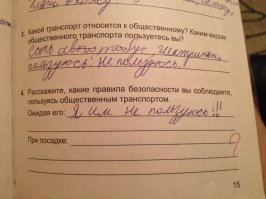 3. Какой транспорт относится к общественному? Каким видом
общественного транспорта пользуетесь вы?
Есть автобус электричка
пользуюсь! Не пользуюсь.
4. Расскажите, какие правила безопасности вы соблюдаете,
пользуясь общественным транспортом.
Ожидая его: Я им не пользуюсь!!!
При посадке:
15